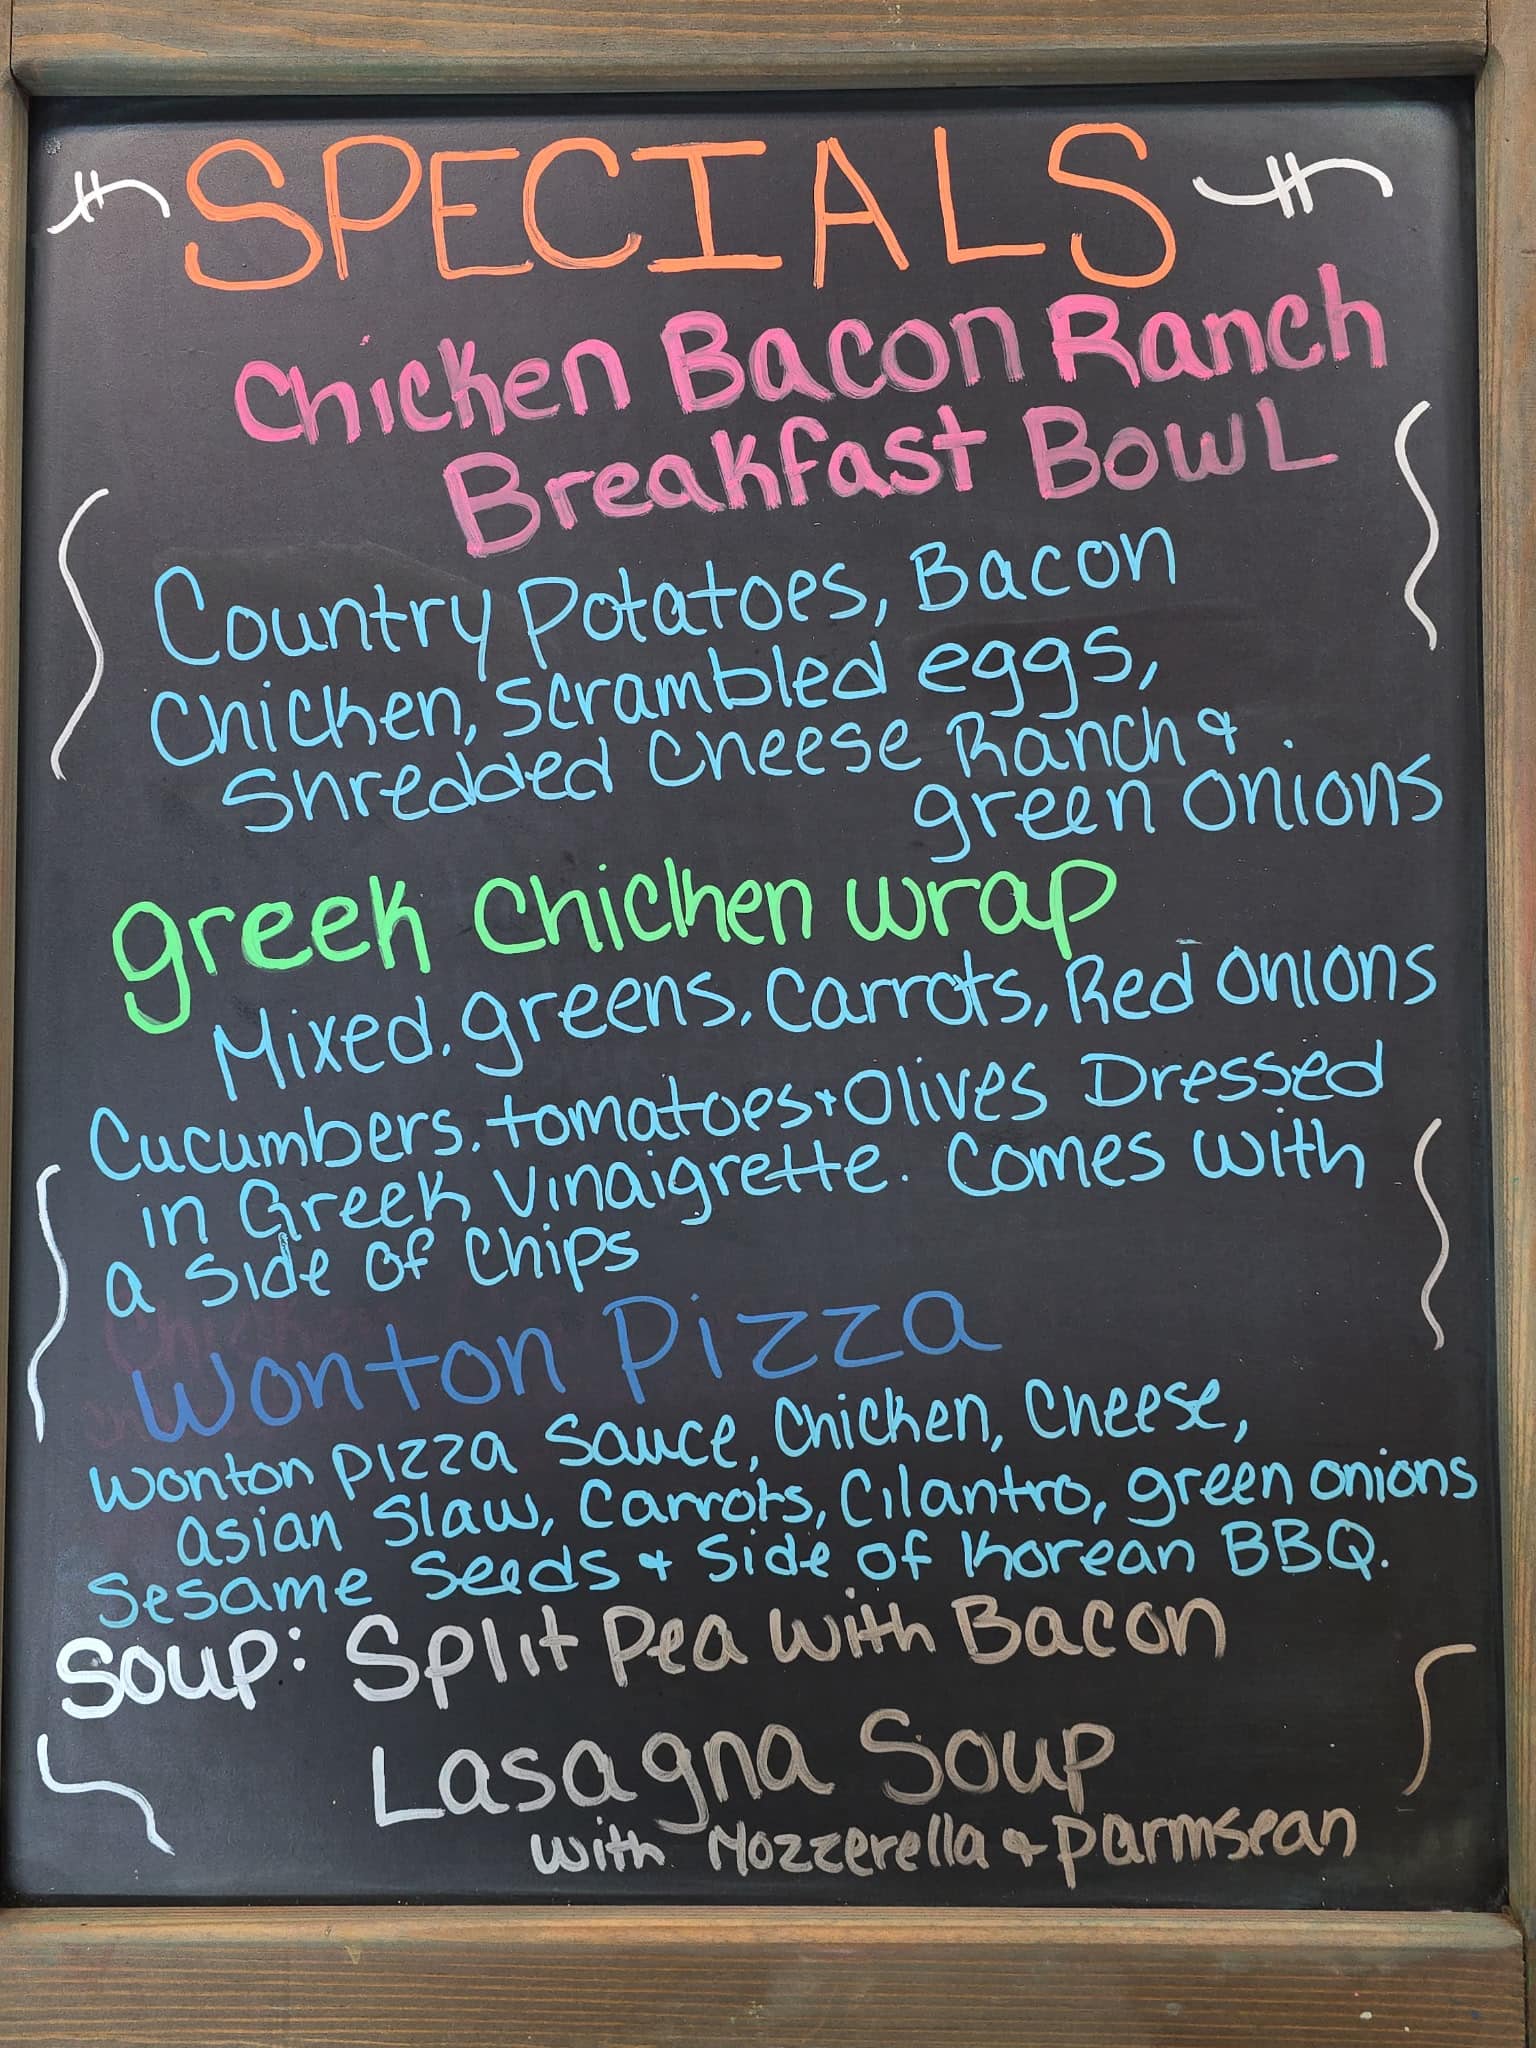 SPECIALS
Chicken Bacon Ranch
Breakfast Bowl
Country Potatoes, Bacon
Chicken, scrambled eggs,
Shredded Cheese Ranch &
green onions
greek Chicken wrap
Mixed. greens, Carrots, Red onions
Cucumbers, tomatoes + Olives Dressed
in Greek Vinaigrette. Comes with
a Side Of Chips
Wonton Pizza
Wonton Pizza Sauce, Chicken, Cheese,
Asian Slaw, Carrots, Cilantro, green onions
Sesame Seeds + Side of Korean BBQ.
Soup: Split Pea with Bacon
Lasagna Soup
with Mozzerella + Parmsean